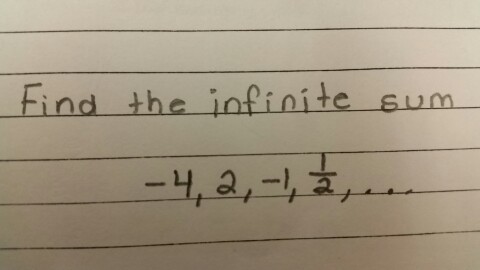 Find the infinite sum
-4, 2, -1, 1/2, ...